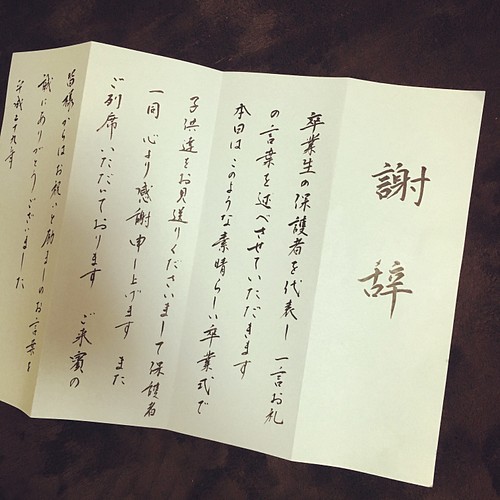 謝辞
卒業生の保護者を代表し 一言お礼
の言葉を述べさせていただきます
本日はこのような素晴らしい卒業式で
子供達をお見送りくださいまして保護者
一同 心より感謝申し上げます また
ご列席いただいております ご来賓の
皆様からはお祝いと励ましのお言葉を
誠にありがとうございました
平成二十九年